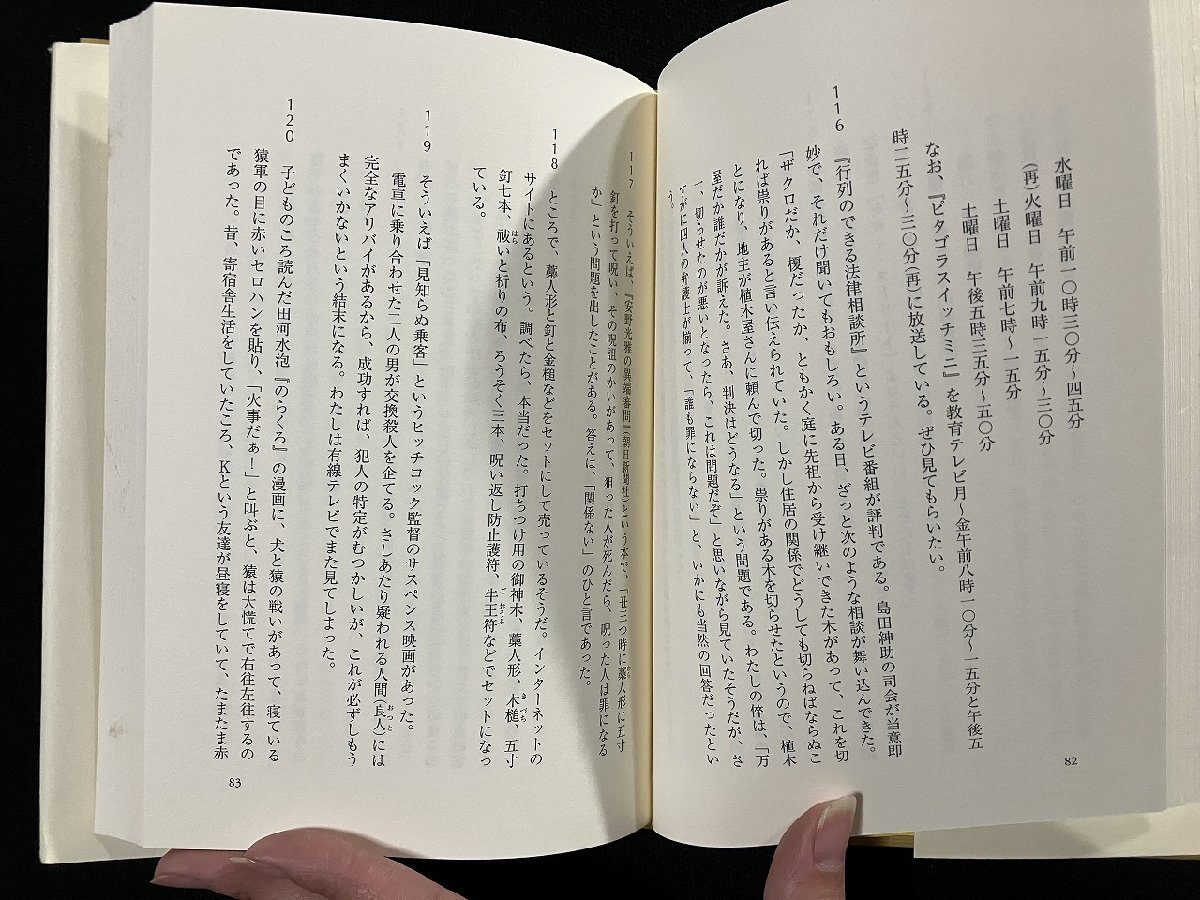 水曜日　午前一〇時三〇分〜四五分
(再)火曜日　午前九時一五分〜三〇分
土曜日　午前七時〜一五分
土曜日　午後五時三五分〜五〇分
なお、『ピタゴラスイッチミニ』を教育テレビ月〜金午前八時一〇分〜一五分と午後五
時二五分〜三〇分(再)に放送している。ぜひ見てもらいたい。
116　『行列のできる法律相談所』というテレビ番組が評判である。島田紳助の司会が当意即
妙で、それだけ聞いてもおもしろい。ある日、ざっと次のような相談が舞い込んできた。
「ザクロだか、榎だったか、ともかく庭に先祖から受け継いできた木があって、これを切
れば祟りがあると言い伝えられていた。しかし住居の関係でどうしても切らねばならぬこ
とになり、地主が植木屋さんに頼んで切った。祟りがある木を切らせたというので、植木
屋だか誰だかが訴えた。さあ、判決はどうなる」という問題である。わたしの倅は、「万
一、切らせたのが悪いとなったら、これは問題だぞ」と思いながら見ていたそうだが、さ
すがに四人の弁護士が揃って、「誰も罪にならない」と、いかにも当然の回答だったとい
う。
82
117　そういえば、『安野光雅の異端審問』(朝日新聞社)という本で、「丑三つ時に藁人形に五寸
釘を打って呪い、その呪詛のかいがあって、狙った人が死んだら、呪った人は罪になる
か」という問題を出したことがある。答えは、「関係ない」のひと言であった。
118　ところで、藁人形と釘と金槌などをセットにして売っているそうだ。インターネットの
サイトにあるという。調べたら、本当だった。打ちつけ用の御神木、藁人形、木槌、五寸
釘七本、祓いと祈りの布、ろうそく三本、呪い返し防止護符、牛王符などでセットになっ
ている。
119　そういえば「見知らぬ乗客」というヒッチコック監督のサスペンス映画があった。
電車に乗り合わせた二人の男が交換殺人を企てる。さしあたり疑われる人間(良人)には
完全なアリバイがあるから、成功すれば、犯人の特定がむつかしいが、これが必ずしもう
まくいかないという結末になる。わたしは有線テレビでまた見てしまった。
120　子どものころ読んだ田河水泡『のらくろ』の漫画に、犬と猿の戦いがあって、寝ている
猿軍の目に赤いセロハンを貼り、「火事だぁー」と叫ぶと、猿は大慌てで右往左往するの
であった。昔、寄宿舎生活をしていたころ、Kという友達が昼寝をしていて、たまたま赤
83